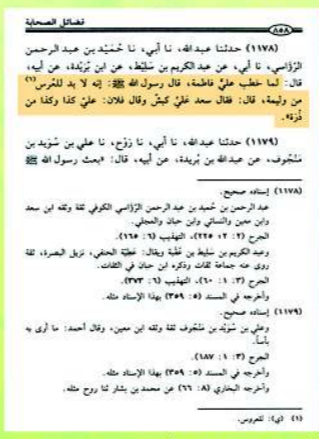 فضائل الصحابة
٨٥٨
(١١٧٨) حدثنا عبدالله، نا أبي، نا حُمَيْد بن عبد الرحمن
الرُّؤاسي، نا أبي، عن عبدالكريم بن سَلِيْط، عن ابن بُرَيْدة، عن أبيه،
قال: لما خطب عليٌّ فاطمة، قال رسول الله ﷺ: إنه لا بد للعُرس(١)
من وليمة، قال: فقال سعد عَلَيَّ كبشٌ وقال فلان: عليَّ كذا وكذا من
ذُرَة».
(١١٧٩) حدثنا عبدالله، نا أبي، نا رَوْح، نا علي بن سُوَيد بن
مَنْجُوف، عن عبدالله بن بُريدة، عن أبيه، قال: «بعث رسول الله ﷺ
(١١٧٨) إسناده صحيح.
عبد الرحمن بن حُميد بن عبد الرحمن الرُّؤاسي الكوفي ثقة وثقه ابن سعد
وابن معين والنسائي وابن حبان والعجلي.
الجرح (٢: ٢: ٢٢٥)، التهذيب (٦: ١٦٥).
وعبد الكريم بن سَليط بن عُقْبة ويقال: عَطِيَّة الحنفي، نزيل البصرة، ثقة
روى عنه جماعة ثقات وذكره ابن حبان في الثقات.
الجرح (٣: ١: ٦٠)، التهذيب (٦: ٣٧٣).
وأخرجه في المسند (٥: ٣٥٩) بهذا الإسناد مثله.
(١١٧٩) إسناده صحيح.
وعلي بن سُوَيْد بن مَنْجُوف ثقة وثقه ابن معين، وقال أحمد: ما أرى به
بأساً.
الجرح (٣: ١: ١٨٧).
وأخرجه في المسند (٥: ٣٥٩) بهذا الإسناد مثله.
وأخرجه البخاري (٨: ٦٦) عن محمد بن بشار ثنا روح مثله.
(١) (ي): للعروس.